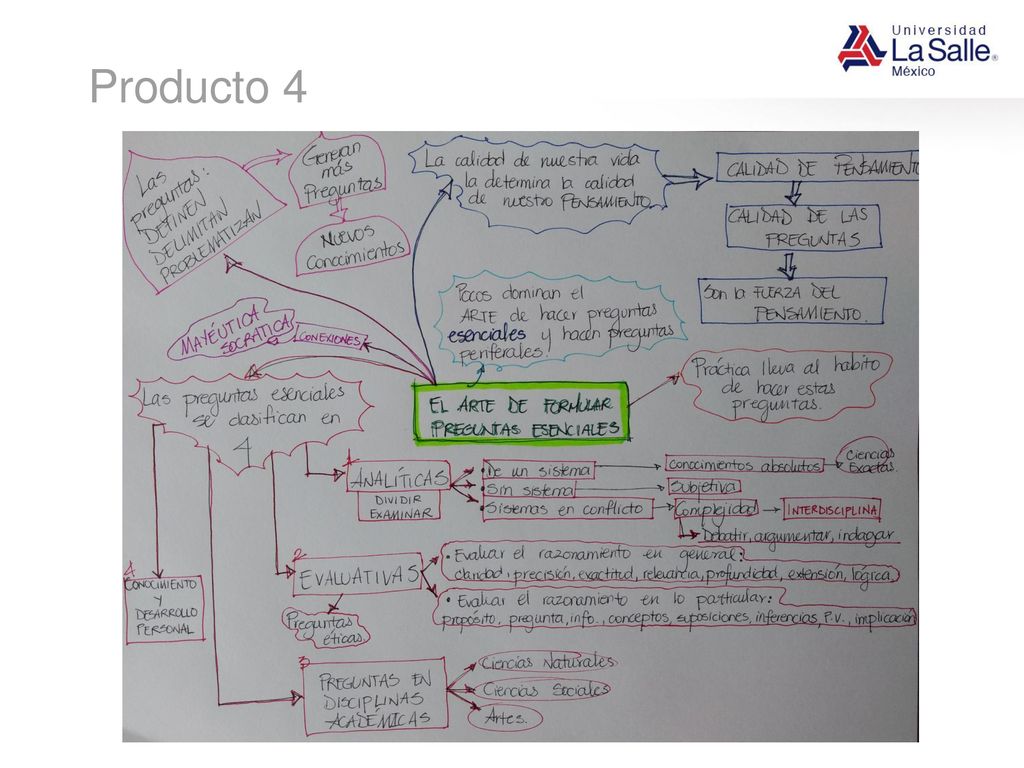 Universidad
La Salle®
México
Producto 4
Las
preguntas:
DEFINEN
DELIMITAN
PROBLEMATIZAN
Generan
más
Preguntas
NUEVOS
Conocimientos
La calidad de nuestra vida
la determina la calidad
de nuestro PENSAMIENTO
CALIDAD DE PENSAMIENTO
CALIDAD DE LAS
PREGUNTAS
Son la FUERZA DEL
PENSAMIENTO.
Pocos dominan el
ARTE de hacer preguntas
esenciales y hacen preguntas
periferales.
MAYÉUTICA
SOCRÁTICA
CONEXIONES
EL ARTE DE FORMULAR
PREGUNTAS ESENCIALES
Práctica lleva al habito
de hacer estas
preguntas.
Las preguntas esenciales
se clasifican en
4
1
ANALÍTICAS
DIVIDIR
EXAMINAR
• De un sistema
Conocimientos absolutos
Ciencias
Exactas.
• Sin sistema
Subjetiva
• Sistemas en conflicto
Complejidad
INTERDISCIPLINA
Debatir, argumentar, indagar
2
EVALUATIVAS
• Evaluar el razonamiento en general:
claridad, precisión, exactitud, relevancia, profundidad, extensión, lógica.
• Evaluar el razonamiento en lo particular:
propósito, pregunta, info., conceptos, suposiciones, inferencias, P.V., implicación
Preguntas
éticas
4
CONOCIMIENTO
Y
DESARROLLO
PERSONAL
3
PREGUNTAS EN
DISCIPLINAS
ACADÉMICAS
Ciencias Naturales
Ciencias Sociales
Artes.